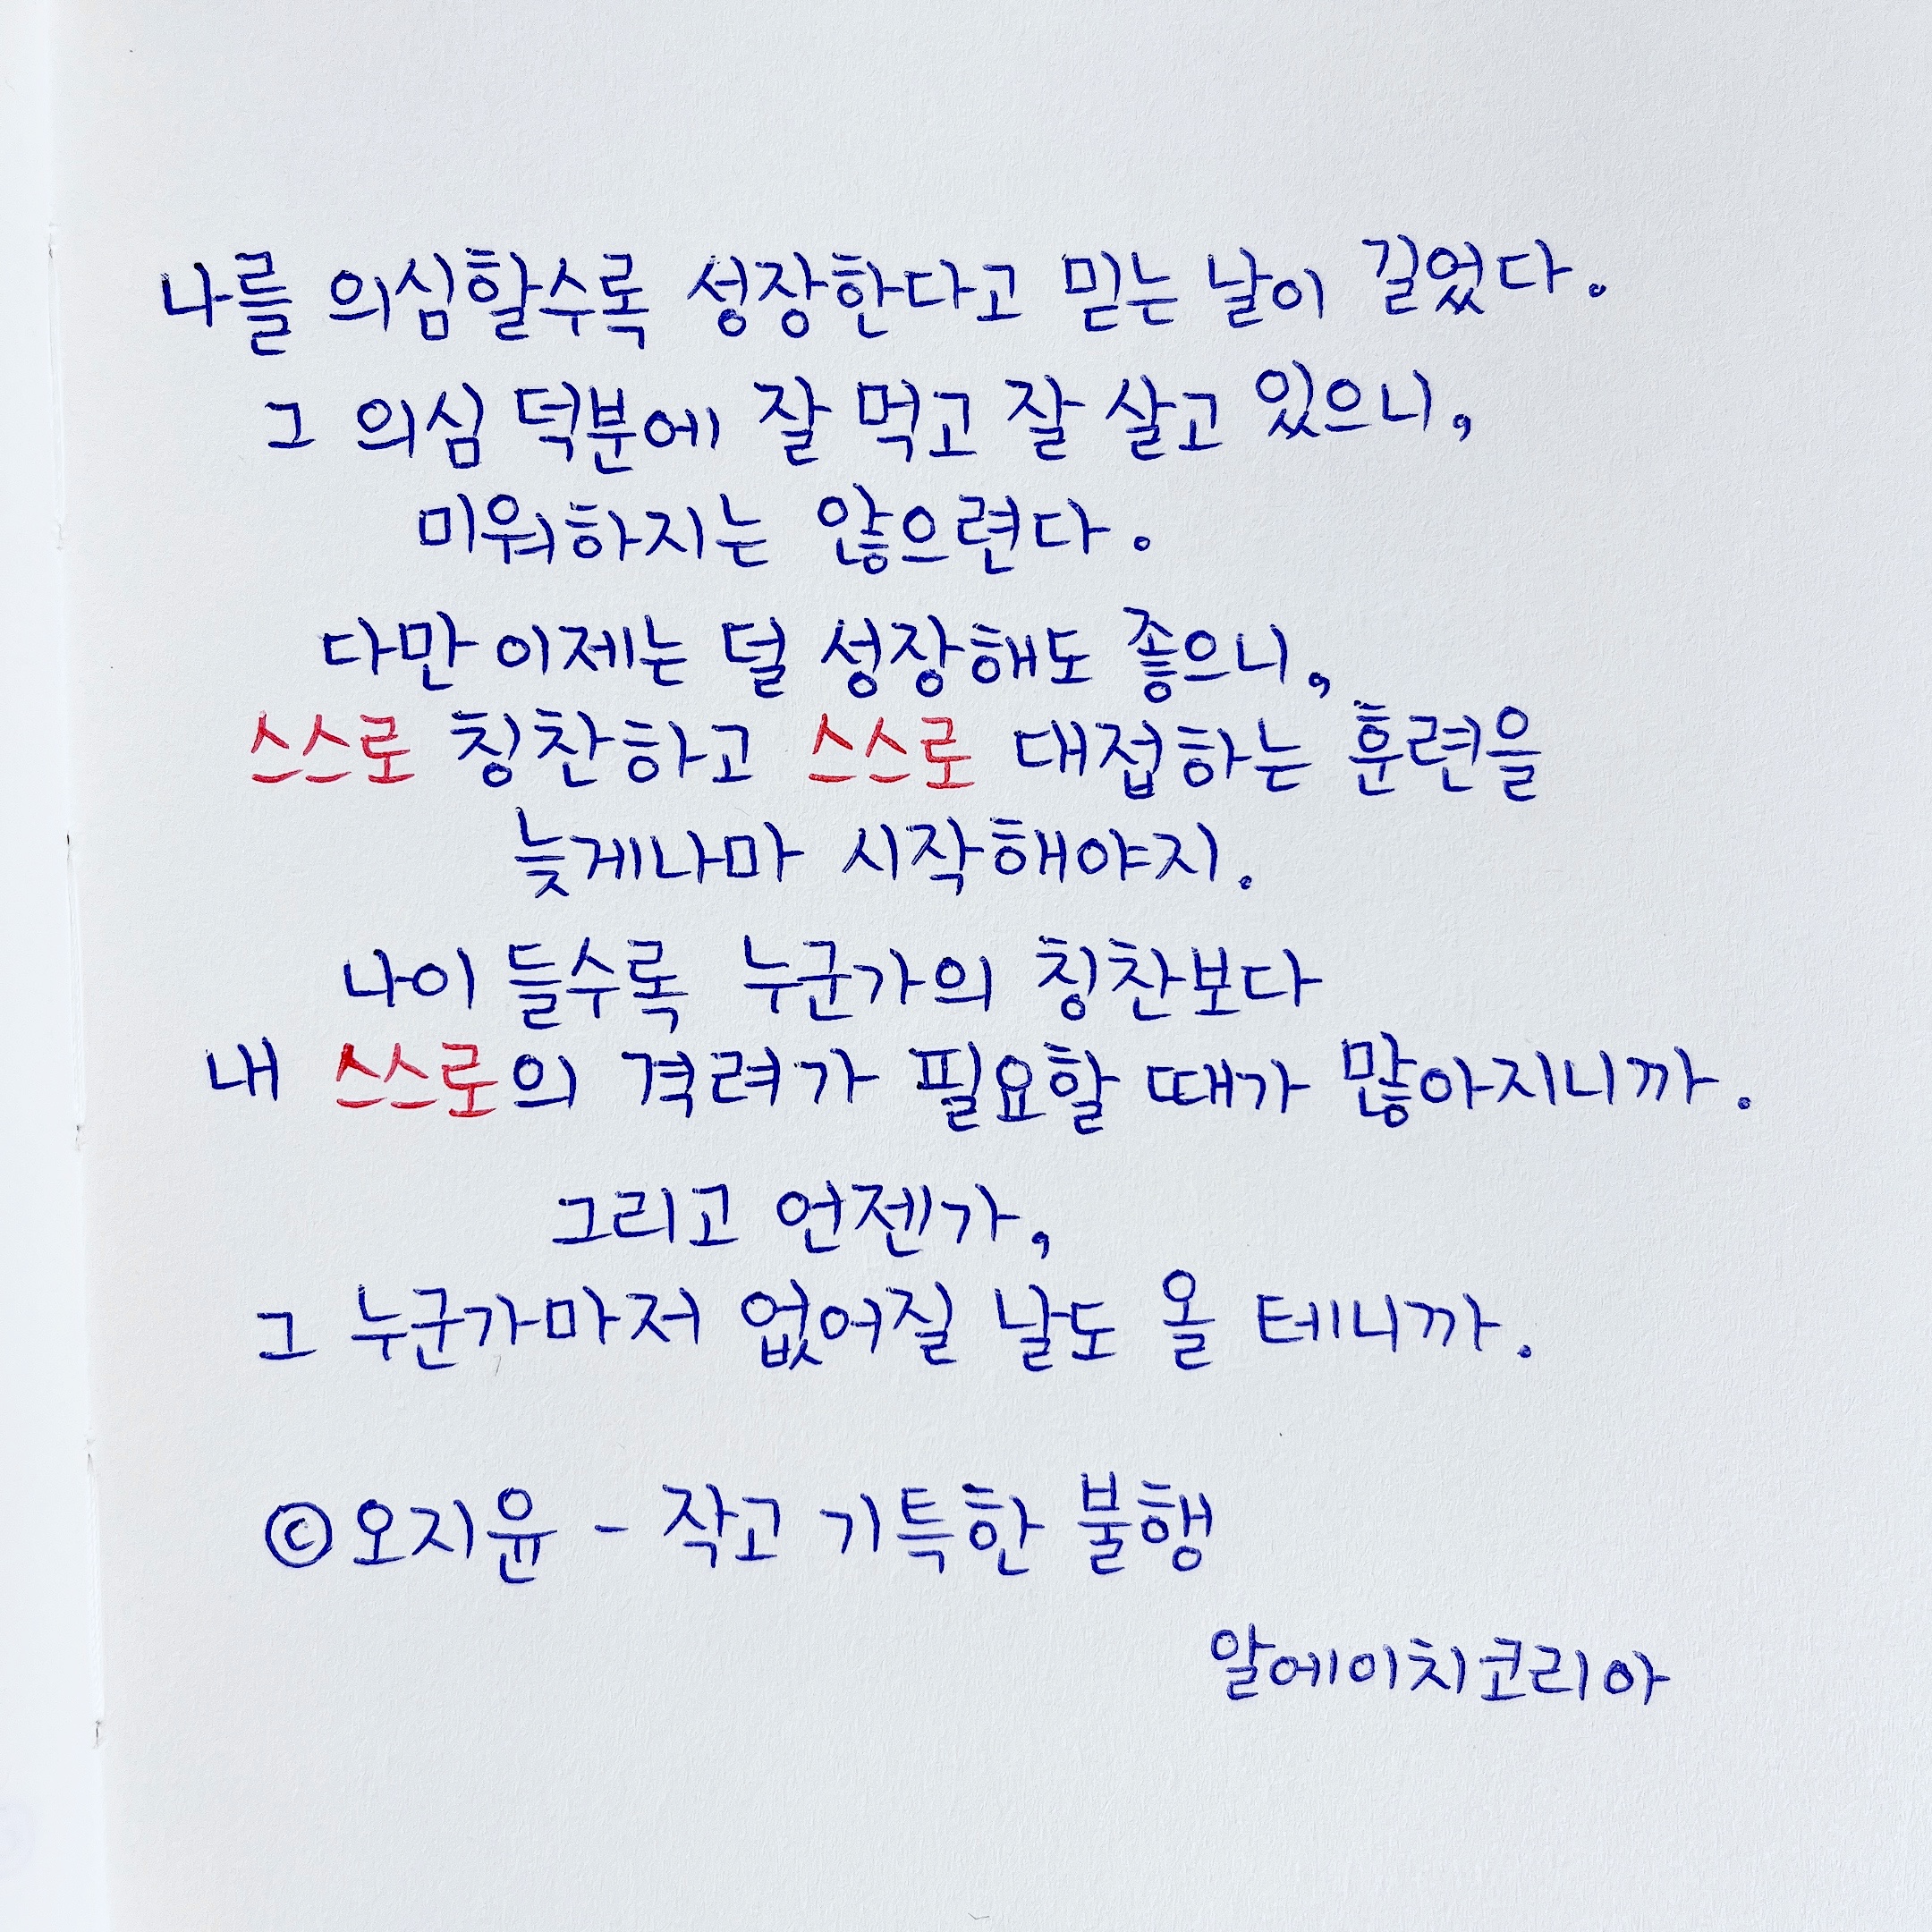 나를 의심할수록 성장한다고 믿는 날이 길었다.
그 의심 덕분에 잘 먹고 잘 살고 있으니,
미워하지는 않으련다.
다만 이제는 덜 성장해도 좋으니,
스스로 칭찬하고 스스로 대접하는 훈련을
늦게나마 시작해야지.
나이 들수록 누군가의 칭찬보다
내 스스로의 격려가 필요할 때가 많아지니까.
그리고 언젠가,
그 누군가마저 없어질 날도 올 테니까.
©오지윤 - 작고 기특한 불행
알에이치코리아